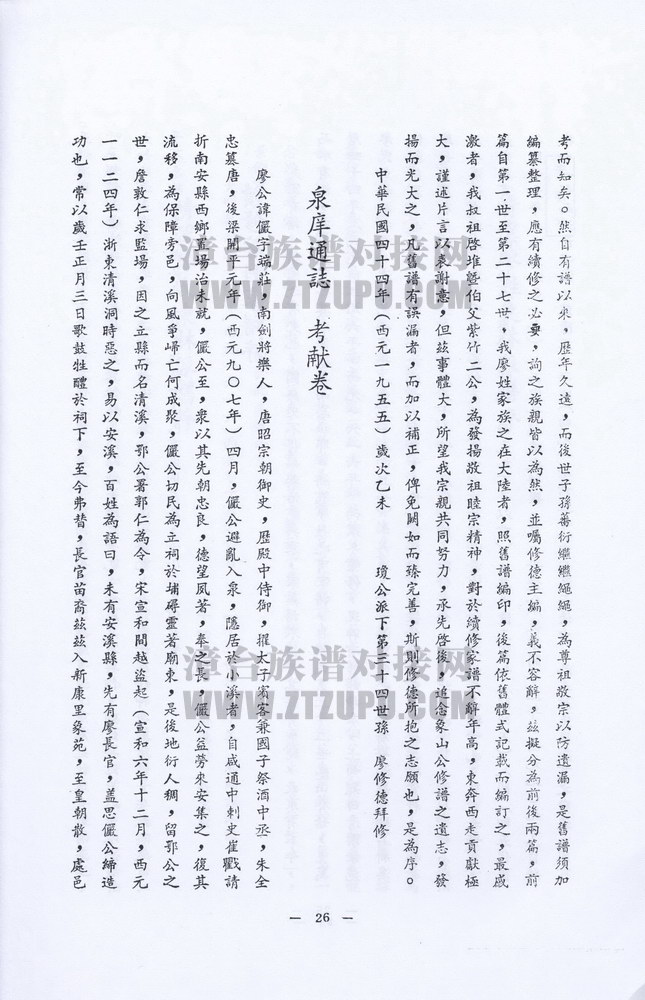 考而知矣。然自有譜以來，歷年久遠，而後世子孫蕃衍繼繼繩繩，為尊祖敬宗以防遺漏，是舊譜須加
編纂整理，應有續修之必要，詢之族親皆以為然，並囑修德主編，義不容辭，茲擬分為前後兩篇，前
篇自第一世至第二十七世，我廖姓家族之在大陸者，照舊譜編印，後篇依舊體式記載而編訂之，最感
激者，我叔祖啓堆暨伯父紫竹二公，為發揚敬祖睦宗精神，對於續修家譜不辭年高，東奔西走貢獻極
大，謹述片言以表謝意，但茲事體大，所望我宗親共同努力，承先啓後，追念象山公修譜之遺志，發
揚而光大之，凡舊譜有誤漏者，而加以補正，俾免闕如而臻完善，斯則修德所抱之志願也，是為序。
中華民國四十四年（西元一九五五）歲次乙未　瓊公派下第三十四世孫　廖修德拜修
泉庠通誌　考献卷
廖公諱儼字端莊，南劍將樂人，唐昭宗朝御史，歷殿中侍御，擢太子賓客兼國子祭酒中丞，朱全
忠篡唐，後梁開平元年（西元九〇七年）四月，儼公避亂入泉，隱居於小溪者，自咸通中刺史崔戳請
折南安縣西鄉置場治未就，儼公至，衆以其先朝忠良，德望夙著，奉之長，儼公益勞來安集之，復其
流移，為保障旁邑，向風爭歸亡何成聚，儼公切民為立祠於埔碍靈著廟東，是後地衍人稠，留鄂公之
世，詹敦仁求監場，因之立縣而名清溪，鄂公署郭仁為令，宋宣和間越盜起（宣和六年十二月，西元
一一二四年）浙東清溪洞時惡之，易以安溪，百姓為語曰，未有安溪縣，先有廖長官，盖思儼公締造
功也，常以歲壬正月三日歌鼓牲醴於祠下，至今弗替，長官苗裔茲茲入新康里象苑，至皇朝散，處邑
— 26 —
漳台族谱对接网
WWW.ZTZUPU.COM
漳台族谱对接网
WWW.ZTZUPU.COM